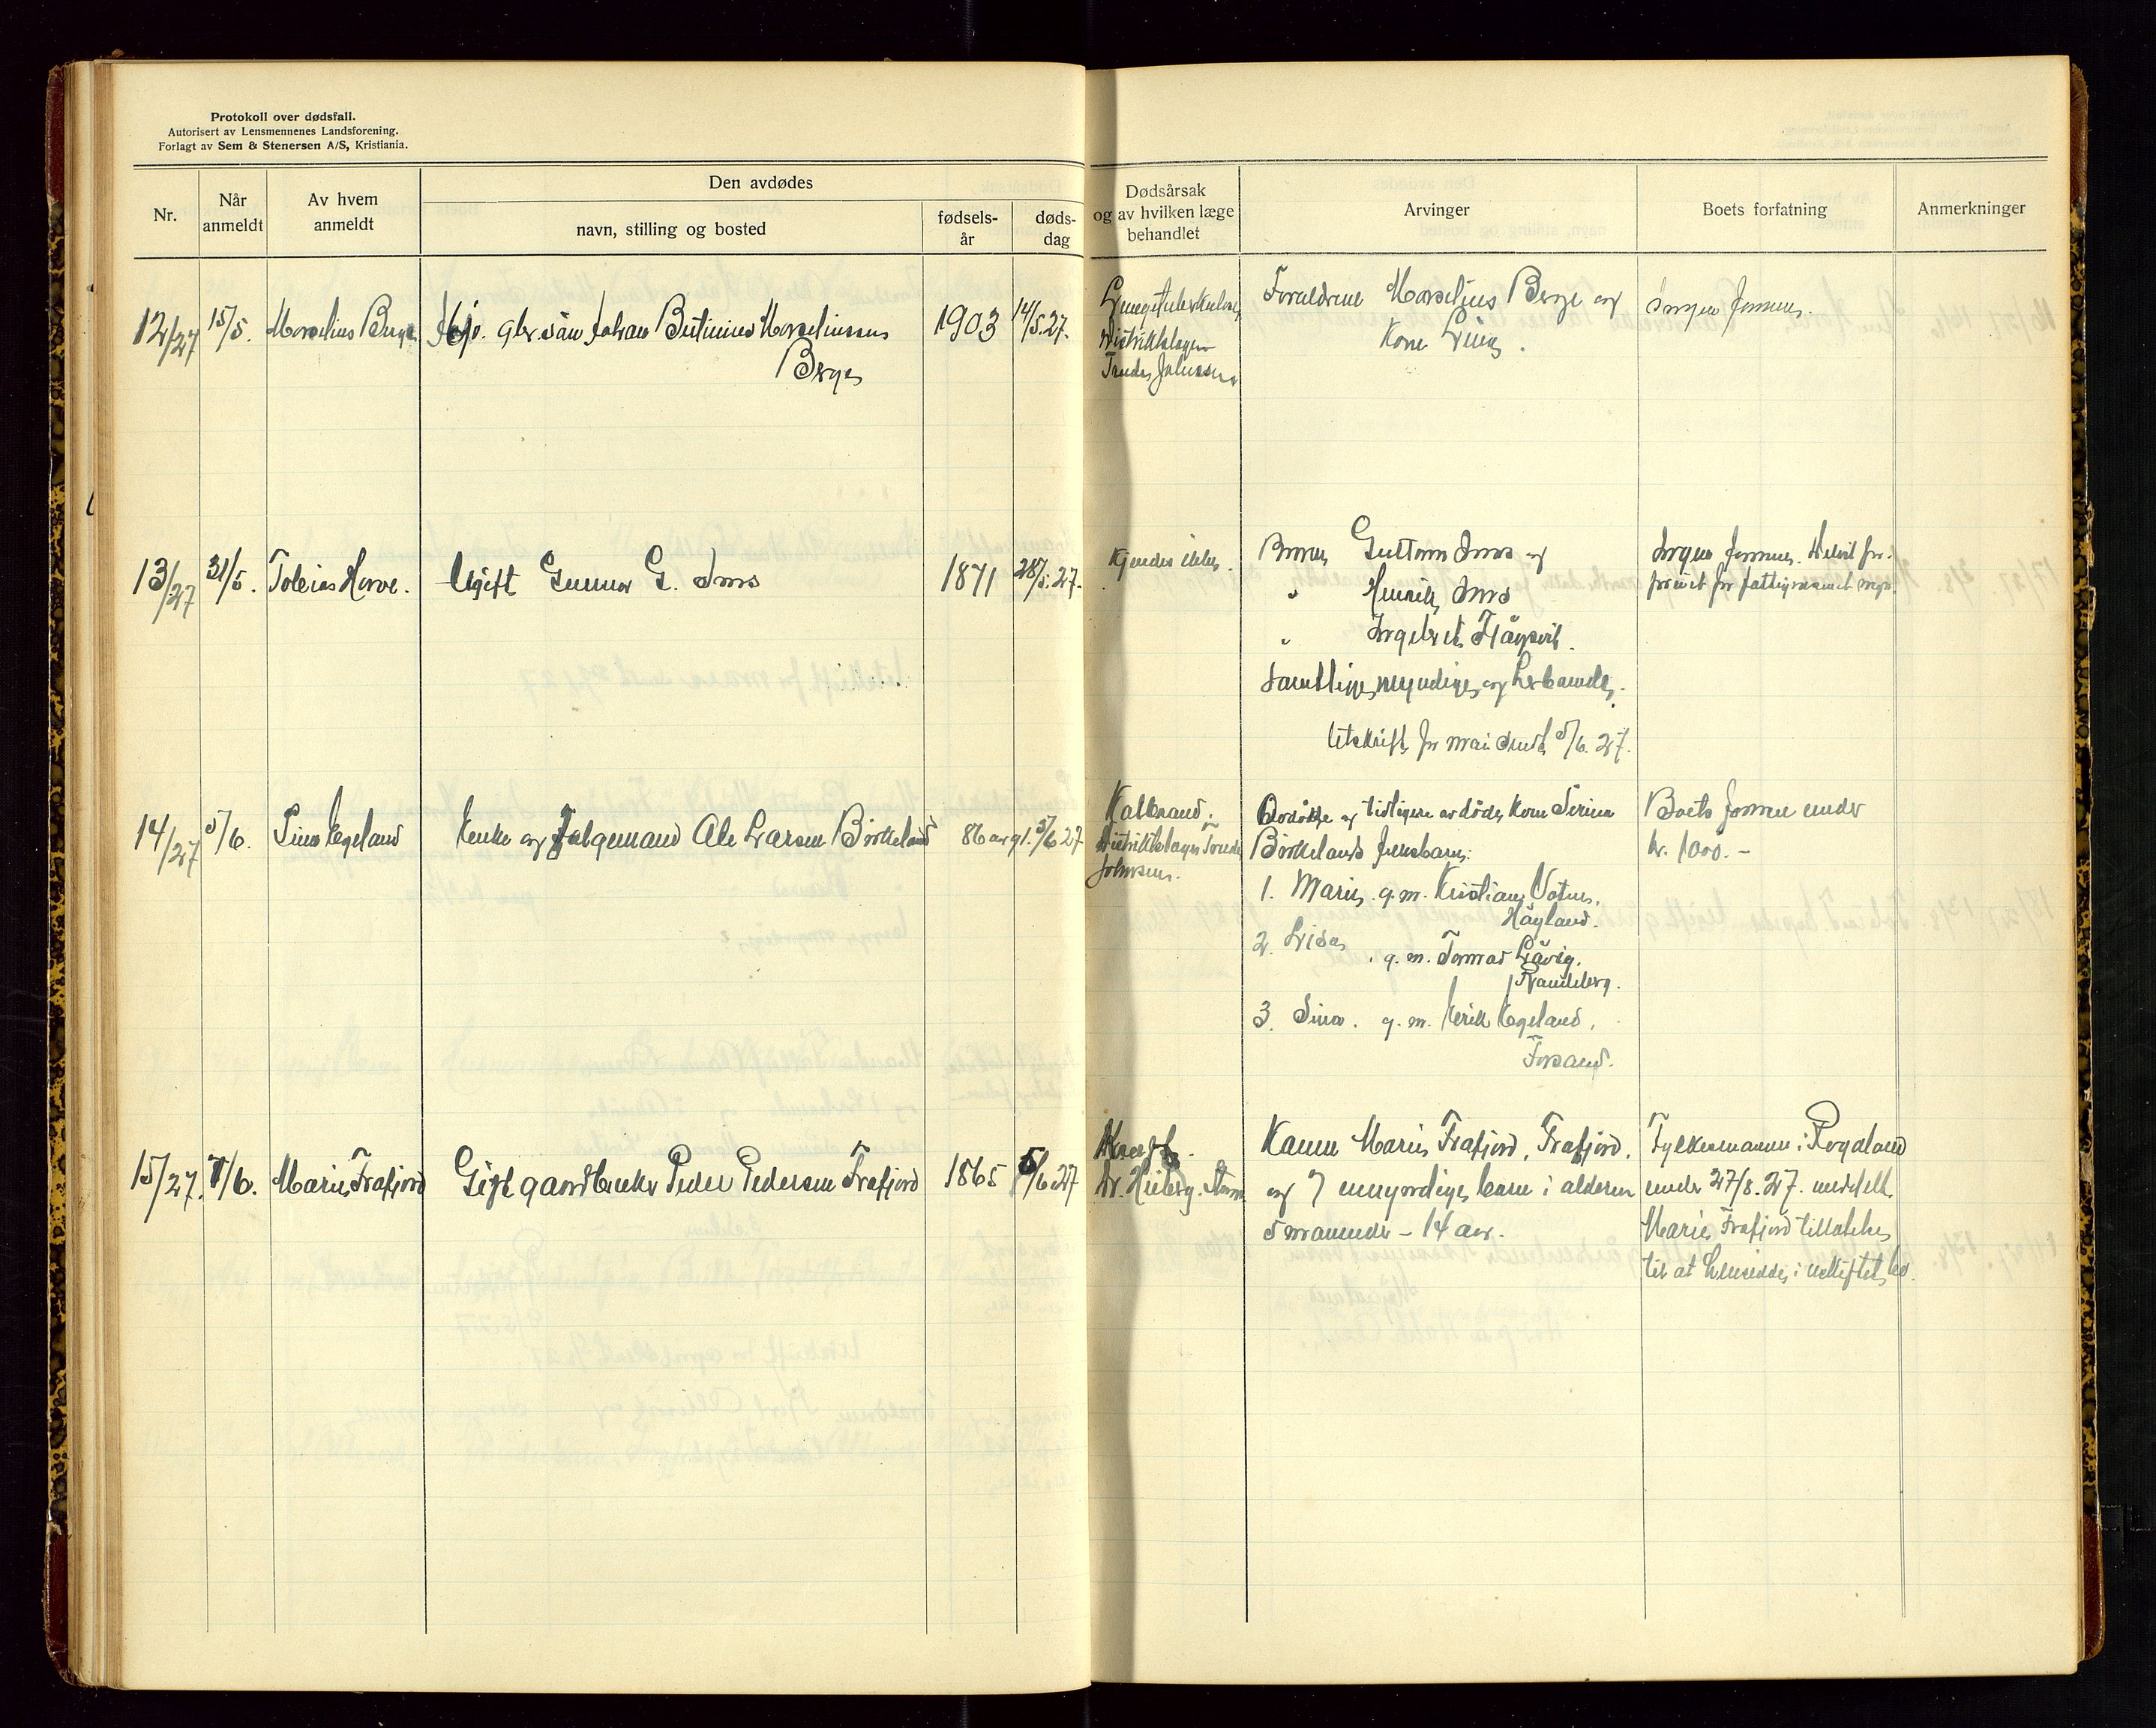 Protokoll over dødsfall.
Autorisert av Lensmennenes Landsforening.
Forlagt av Sem & Stenersen A/S, Kristiania.
Nr.
Når
anmeldt
Av hvem
anmeldt
Den avdødes
navn, stilling og bosted
fødsels-
år
døds-
dag
Dødsårsak
og av hvilken læge
behandlet
Arvinger
Boets forfatning
Anmerkninger
12/27
15/5.
Morselius Berge
Johan Morseliussen
Berge
1903
14/5.27.
Lungetuberkulose
Distriktslægen
Johnsen
Forældrene Morselius Berge og
Kone
Ingen formue.
13/27
31/5.
Tobias Horve.
Ugift Gunnar G. Ims
1871
28/5.27.
Kjendes ikke.
Broren Guttorm Ims og
" Henrik Ims
"
Samtlige myndige og
Utskrift for mai sendt 5/6.27.
Ingen formue.
14/27
5/6.
Sina Egeland
Enke og Ole Larsen Birkeland
86 aar gl.
5/6 27
Koldbrand.
Distriktslægen
Johnsen.
Avdøde og tidligere avdøde kone Serina
Birkelands
1. Marie g.m. Kristian
Høyland.
2. Lisa g.m. Tomas
Randeberg.
3. Sina. g.m. Eerik Egeland,
Forsand.
Boets formue under
kr. 1000.-
15/27.
7/6.
Marie Frafjord
Gift gaardbruker Peder Pedersen Frafjord
1865
5/6 27
Kræft.
Dr.
Konen Marie Frafjord, Frafjord.
og 7 umyndige barn i alderen
5 maaneder - 14 aar.
Fylkesmannen i Rogaland
under 27/8.27. meddelt
Marie Frafjord tillatelse
til at hensidde i uskiftet bo.